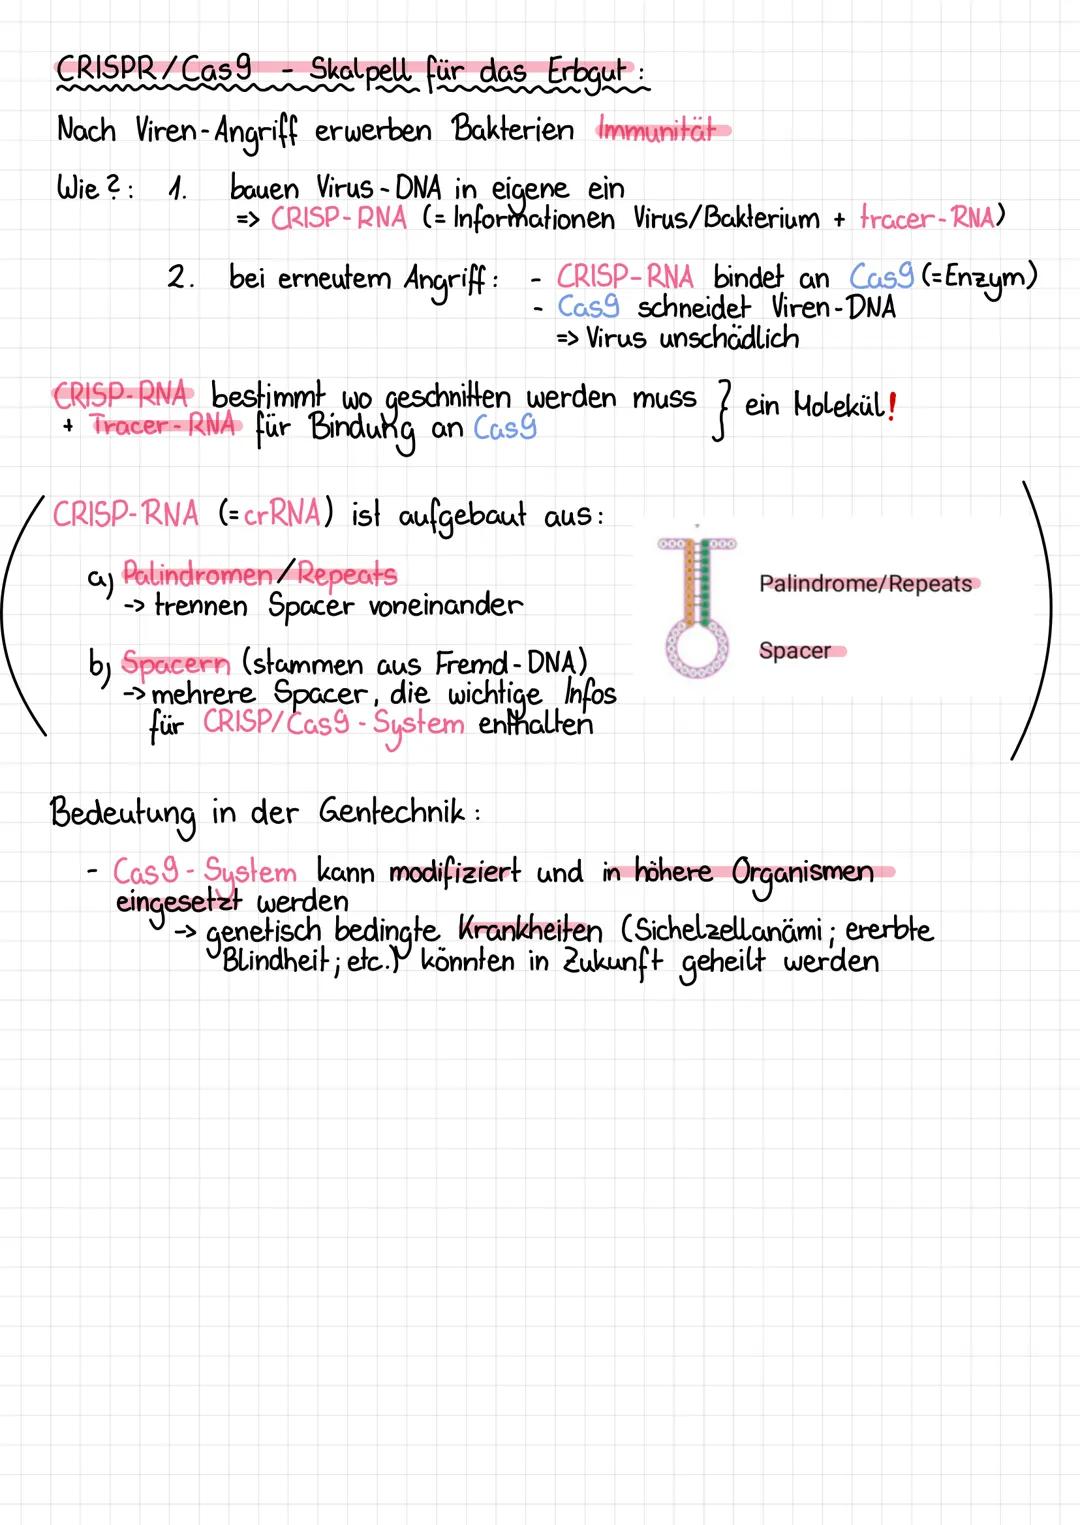 CRISPR/Cas9 - Skalpell für das Erbgut:
Nach Viren-Angriff erwerben Bakterien Immunität
Wie?: 1. bauen Virus-DNA in eigene ein
=> CRISP-RNA (= Informationen Virus/Bakterium + tracer-RNA)
2. bei erneutem Angriff: - CRISP-RNA bindet an Cas9 (=Enzym)
- Cas9 schneidet Viren-DNA
=> Virus unschädlich
CRISP-RNA bestimmt wo geschnitten werden muss } ein Molekül!
+ Tracer-RNA für Bindung an Cas9
(CRISP-RNA (=crRNA) ist aufgebaut aus:
a) Palindromen/Repeats
-> trennen Spacer voneinander
b) Spacern (stammen aus Fremd-DNA)
-> mehrere Spacer, die wichtige Infos
für CRISP/Cas9-System enthalten
Palindrome/Repeats
Spacer)
Bedeutung in der Gentechnik:
- Cas9-System kann modifiziert und in höhere Organismen
eingesetzt werden
-> genetisch bedingte Krankheiten (Sichelzellanämi; ererbte
Blindheit; etc.) könnten in Zukunft geheilt werden